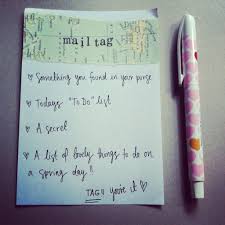 mail tag
♡ Something you found in your purse
♡ Todays "To Do" list
♡ A secret
♡ A list of lovely things to do on
a spring day!!
TAG!! you're it ♡